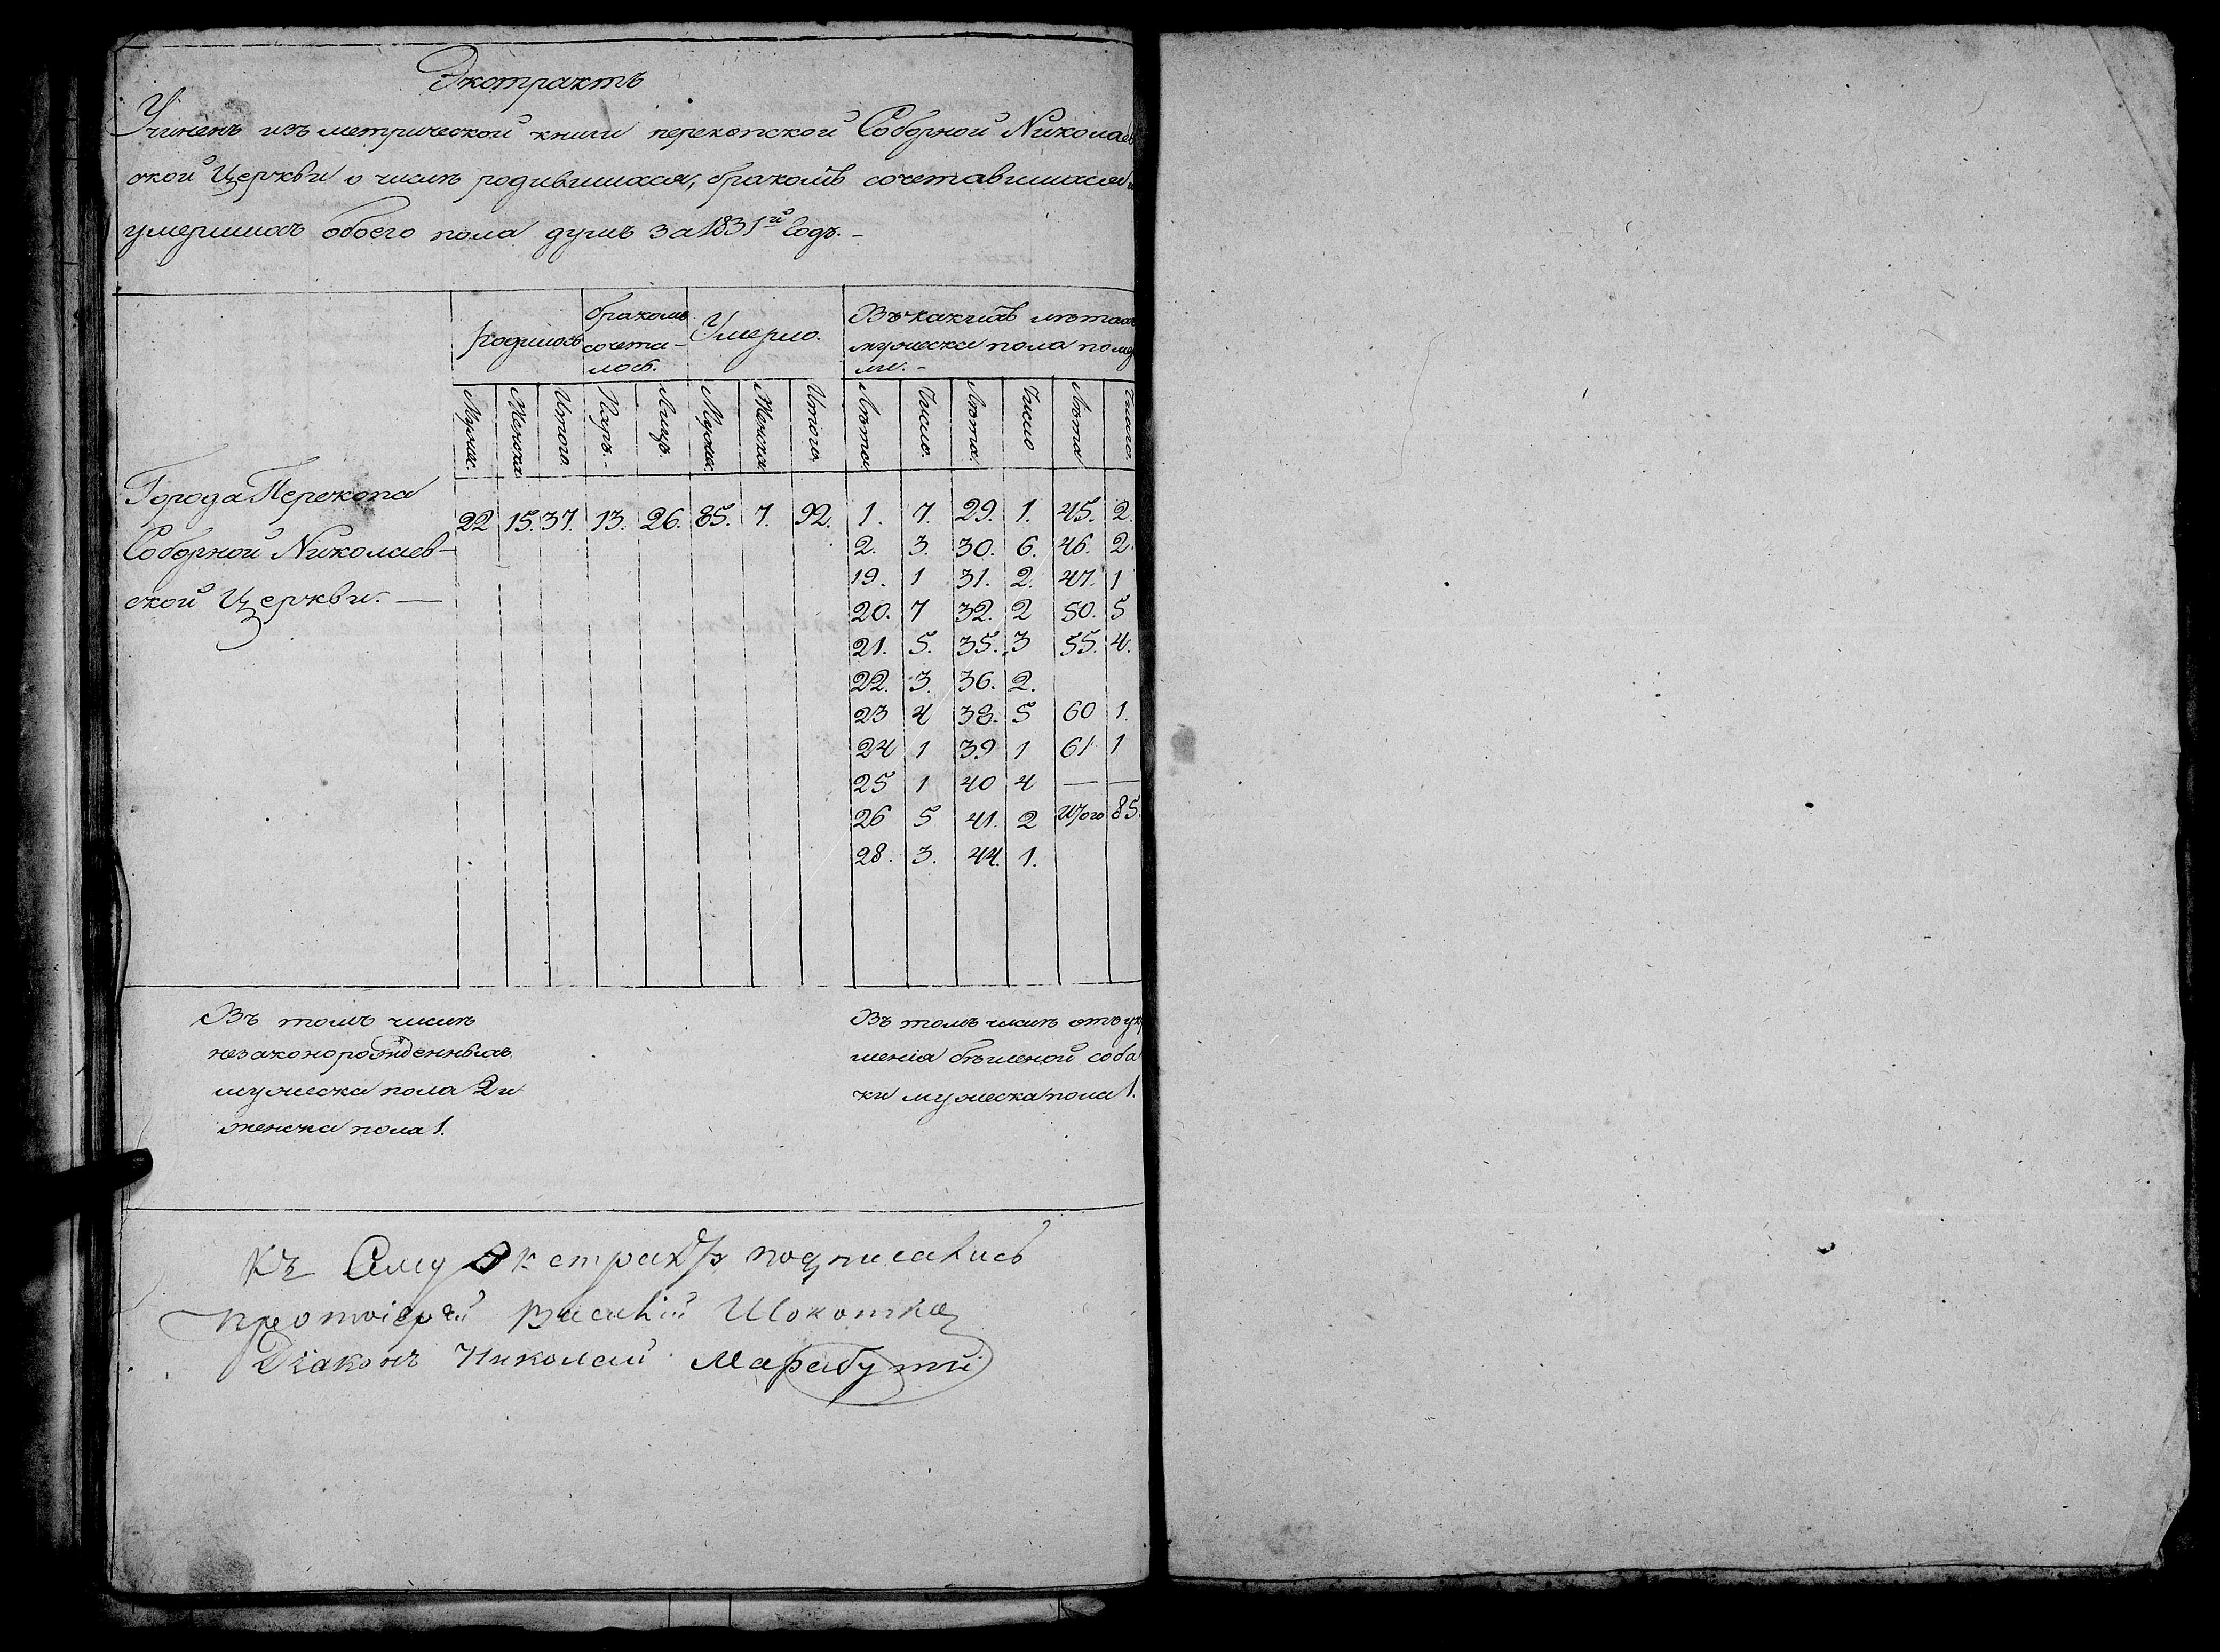 Экстрактъ
Учиненъ изъ метрической книги перекопской Соборной Николаев
ской Церкви о числѣ родившихся, бракомъ сочетавшихся и
умершихъ обоего пола душъ за 1831й Годъ. –
родилось бракомъ сочета– лось. Умерло. Въ какихъ лѣтахъ мужеска пола поме рли. –
Мужес. Женска Итого. Паръ. – Лицъ. Мужес. Женска Итого Лѣта Число. Лѣта. Число Лѣта Число.
Города Перекопа
Соборной Николаев–
ской Церкви. —
22 15. 37. 13. 26. 85. 7. 92. 1. 7. 29. 1. 45. 2.
2. 3. 30. 6. 46. 2.
19. 1 31. 2. 47. 1
20. 7 32. 2 50. 5
21. 5. 35. 3 55. 4.
22. 3. 36. 2.
23 4 38. 5 60 1.
24 1 39 1 61 1
25 1 40 4 — —
26 5 41. 2 Итого 85.
28. 3. 44. 1.
Въ томъ числѣ
незаконорожденныхъ
мужеска пола 2 и
женска пола 1.
Въ томъ числѣ отъ уку
шенія бѣшеной соба
ки мужеска пола 1.
Къ Сему Экстракту подписались
Протоіерей Василій
Діаконъ Николай